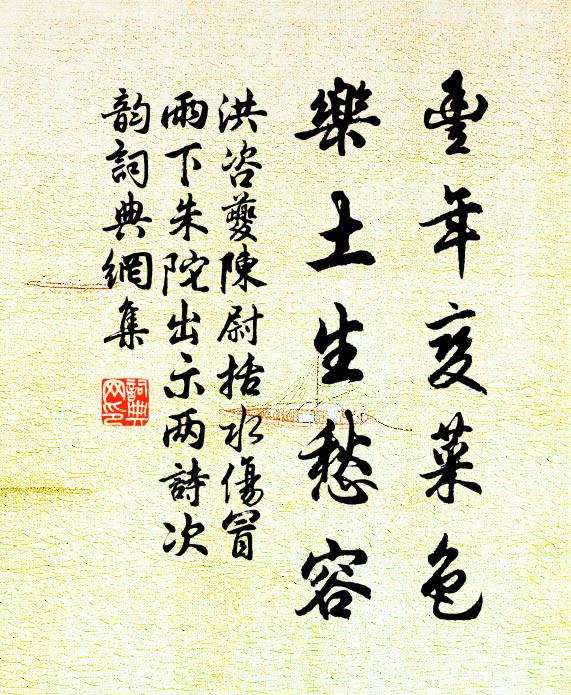 豊年变菜色
樂土生愁容
洪咨夔陳尉括水傷冒
雨下朱陀出示两詩次
韵詞典網集
詞典网印